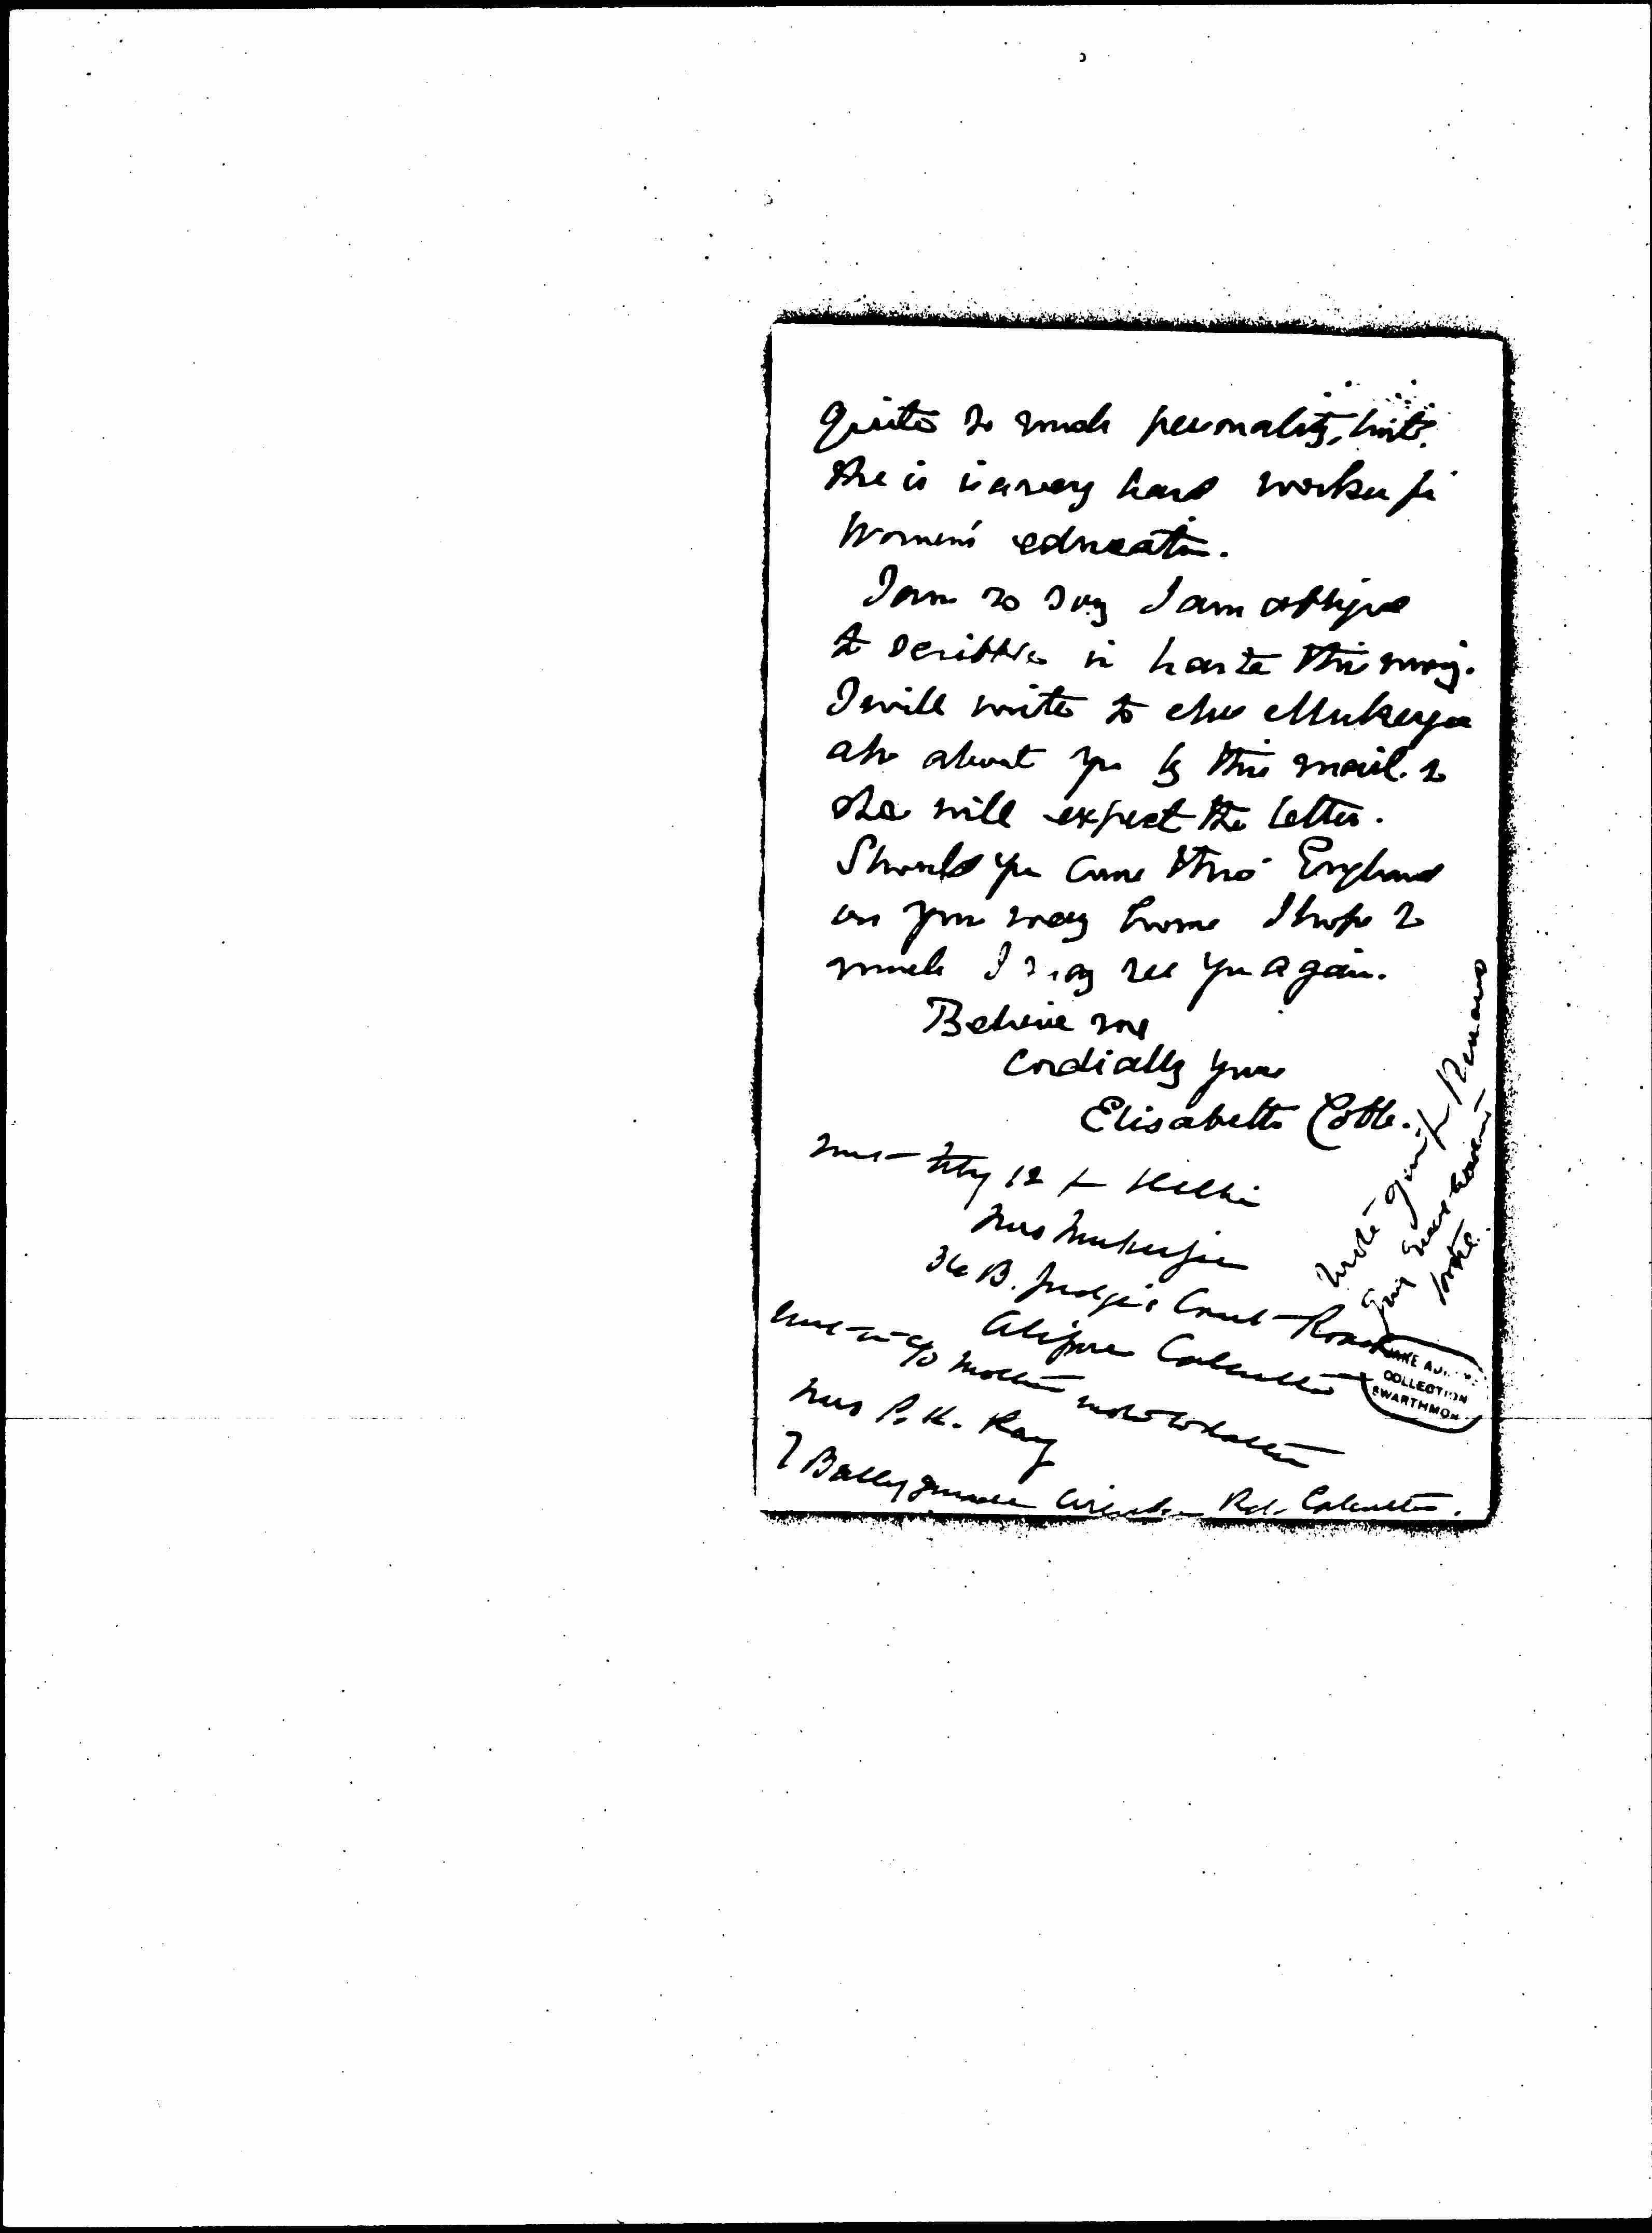 quite so much personality, but
she is is a very hard worker for
Women's education.
I am so sorry I am obliged
to scribble in haste this way.
I will write to Mrs Mukerjea
also about you by this mail. so
she will expect the letter.
Should you come thro' England
on your way home I hope so
much I may see you again.
Believe me
Cordially yours
Elisabeth
12 Delhi
Mrs Mukerjee
36 B. Judge's Court Road
Alipore Calcutta
Mrs P. K. Ray
7 Ballygunge Circular Rd. Calcutta.
Wrote
COLLECTION
SWARTHMORE